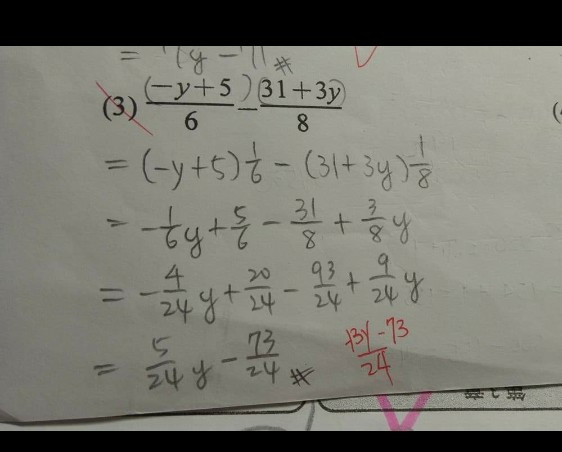 (3) (−y+5)/6 − (31+3y)/8
= (-y+5)1/6 - (31+3y)1/8
= -1/6y + 5/6 - 31/8 + 3/8y
= -4/24y + 20/24 - 93/24 + 9/24y
= 5/24y - 73/24 #
-13y-73/24